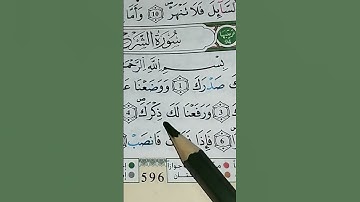 ٱلسَّآئِلَ فَلَا تَنْهَرْ ۝١٠ وَأَمَّا
سُورَةُ الشَّرْحِ
بِسْمِ ٱللَّهِ ٱلرَّحْمَٰ
صَدْرَكَ ۝١ وَوَضَعْنَا عَ
۝٣ وَرَفَعْنَا لَكَ ذِكْرَكَ ۝٤
۝٦ فَإِذَا فَٱنصَبْ
596